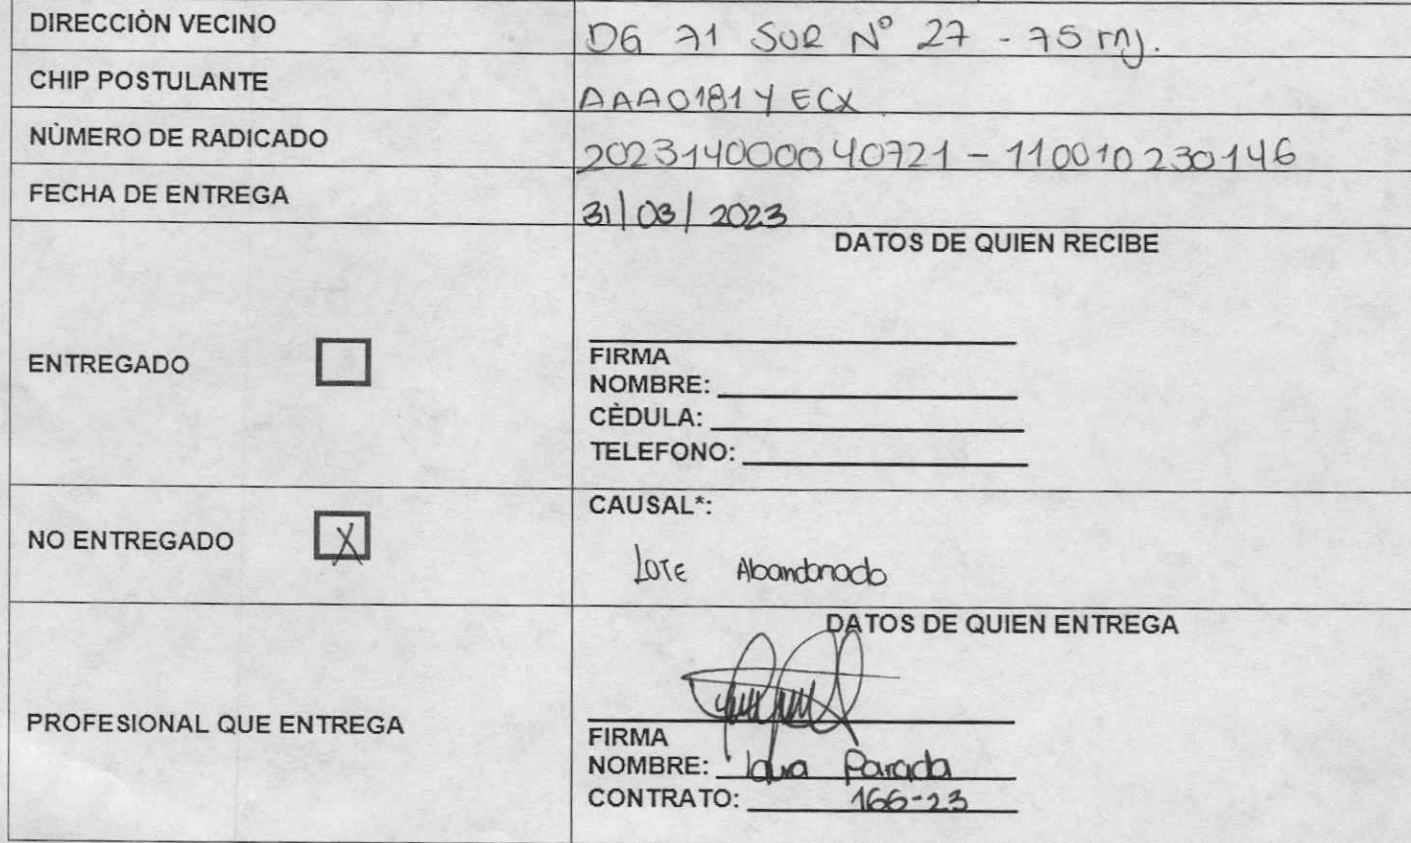 DIRECCIÒN VECINO DG 71 SUR N° 27 - 75 MJ.
CHIP POSTULANTE AAA0181YECX
NÙMERO DE RADICADO 20231400040721 - 110010230146
FECHA DE ENTREGA 31/03/2023
DATOS DE QUIEN RECIBE
ENTREGADO
FIRMA
NOMBRE:
CÈDULA:
TELEFONO:
NO ENTREGADO X
CAUSAL*:
Lote Abandonado
DATOS DE QUIEN ENTREGA
PROFESIONAL QUE ENTREGA
FIRMA
NOMBRE: Laura Parada
CONTRATO: 166-23